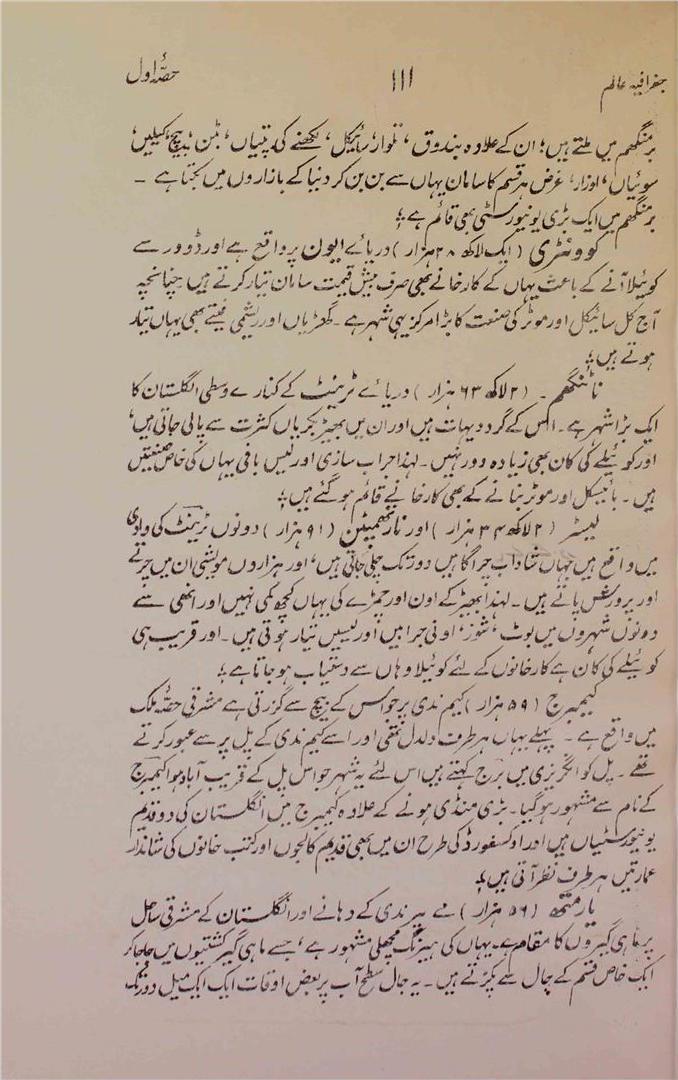 جغرافیہ عالم ۱۱۱ حصّۂ اول
برمنگھم میں ملتے ہیں؛ ان کے علاوہ بندوق، تلوار، سائیکل، لکھنے کی پتیاں، بٹن، پیچ، کیلیں،
سوئیاں، اوزار، غرض ہر قسم کا سامان یہاں سے بن بن کر دنیا کے بازاروں میں بکتا ہے ۔
برمنگھم میں ایک بڑی یونیورسٹی بھی قائم ہے؛
کوونٹری (ایک لاکھ ۲۸ ہزار) دریائے ایون پر واقع ہے اور ڈوور سے
کوئیلا آنے کے باعث یہاں کے کارخانے بھی صرف بیش قیمت سامان تیار کرتے ہیں چنانچہ
آج کل سائیکل اور موٹر کی صنعت کا بڑا مرکز یہی شہر ہے۔ گھڑیاں اور ریشمی فیتے بھی یہاں تیار
ہوتے ہیں؛
ناٹنگھم ۔ (۲ لاکھ ۶۳ ہزار) دریائے ٹرینٹ کے کنارے وسطی انگلستان کا
ایک بڑا شہر ہے۔ اس کے گرد دیہات ہیں اور ان میں بھیڑ بکریاں کثرت سے پالی جاتی ہیں،
اور کوئیلے کی کان بھی زیادہ دور نہیں۔ لہذا جراب سازی اور لیس بافی یہاں کی خاص صنعتیں
ہیں۔ بائیسکل اور موٹر بنانے کے بھی کارخانے قائم ہو گئے ہیں؛
لیسٹر (۲ لاکھ ۳۴ ہزار) اور نارتھمپٹن (۹۱ ہزار) دونوں ٹرینٹ کی وادی
میں واقع ہیں جہاں شاداب چراگاہیں دور تک چلی جاتی ہیں، اور ہزاروں مویشی ان میں چرتے
اور پرورش پاتے ہیں۔ لہذا بھیڑ کے اون اور چمڑے کی یہاں کچھ کمی نہیں اور انھی سے
دونوں شہروں میں بوٹ، شوز، اونی جرابیں اور لیسیں تیار ہوتی ہیں۔ اور قریب ہی
کوئیلے کی کان ہے کارخانوں کے لئے کوئیلا وہاں سے دستیاب ہو جاتا ہے؛
کیمبرج (۵۹ ہزار) کیم ندی پر جو اس کے بیچ سے گزرتی ہے مشرقی حصّۂ ملک
میں واقع ہے ۔ پہلے یہاں ہر طرف دلدل تھی اور اسے کیم ندی کے پل پر سے عبور کرتے
تھے ۔ پل کو انگریزی میں برج کہتے ہیں اس لئے یہ شہر جو اس پل کے قریب آباد ہوا کیمبرج
کے نام سے مشہور ہو گیا۔ بڑی منڈی ہونے کے علاوہ کیمبرج میں انگلستان کی دو قدیم
یونیورسٹیاں ہیں اور اوکسفورڈ کی طرح ان میں بھی قدیم کالجوں اور کتب خانوں کی شاندار
عمارتیں ہر طرف نظر آتی ہیں؛
یارمتھ (۵۶ ہزار) ندی کے دہانے اور انگلستان کے مشرقی ساحل
پر ماہی گیروں کا مقام ہے۔ یہاں کی ہیرنگ مچھلی مشہور ہے، جسے ماہی گیر کشتیوں میں جا جا کر
ایک خاص قسم کے جال سے پکڑتے ہیں۔ یہ جال سطح آب پر بعض اوقات ایک ایک میل دور تک